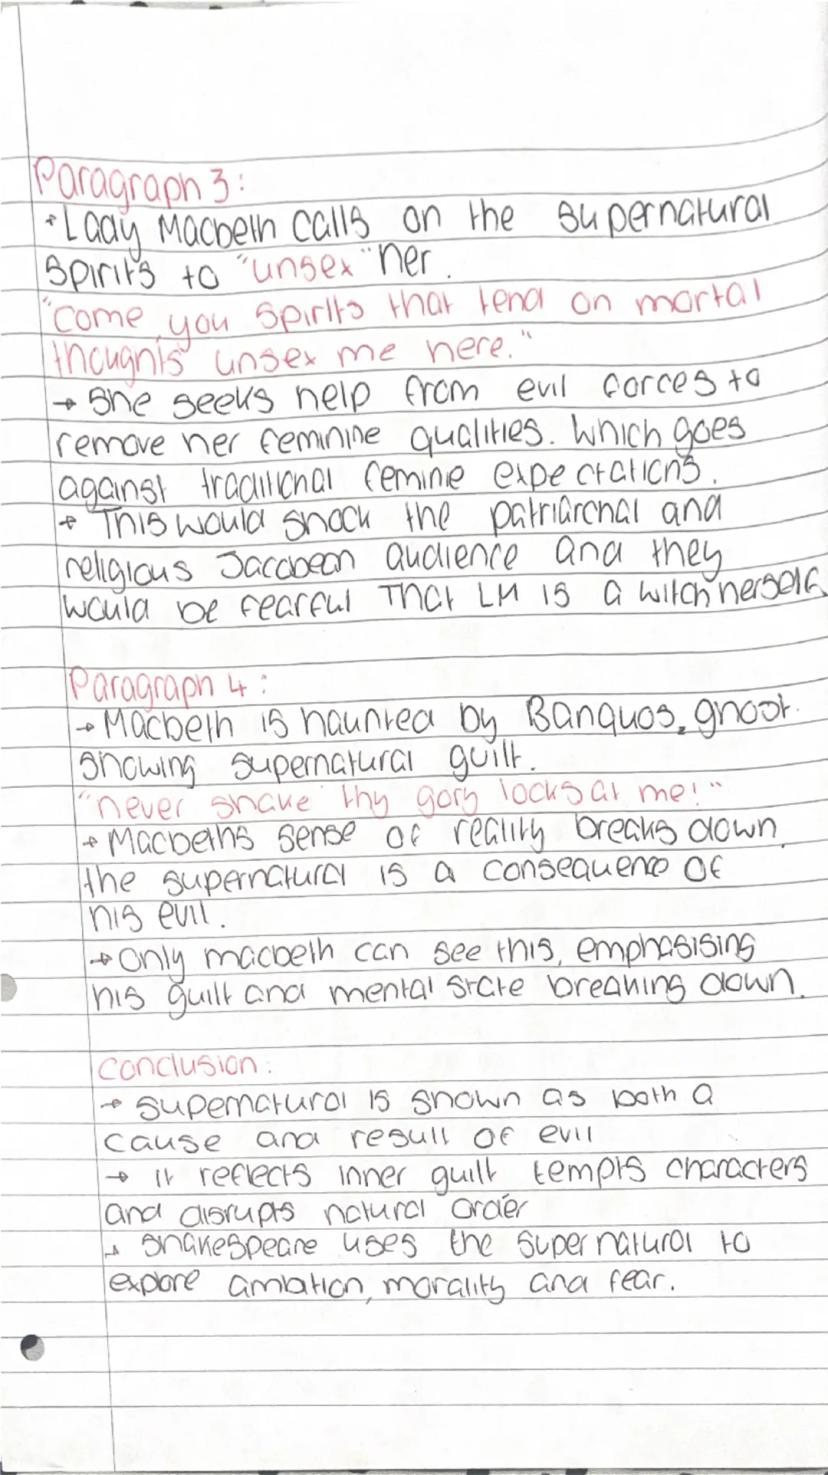 Paragraph 3:
• Lady Macbeth calls on the supernatural
spirits to "unsex" her.
"come you spirits that tend on mortal
thoughts unsex me here."
→ she seeks help from evil forces to
remove her feminine qualities. Which goes
against traditional femine expectations.
→ This would shock the patriarchal and
religious Jacobean audience and they
would be fearful That LM is a witch herself.
Paragraph 4:
→ Macbeth is haunted by Banquos, ghost.
showing supernatural guilt.
"never shake thy gory locks at me!"
→ Macbeths sense of reality breaks down,
the supernatural is a consequence of
his evil.
→ only macbeth can see this, emphasising
his guilt and mental state breaking down.
conclusion:
→ supernatural is shown as both a
cause and result of evil
→ it reflects inner guilt tempts characters
and disrupts natural order
→ Shakespeare uses the supernatural to
explore ambition, morality and fear.